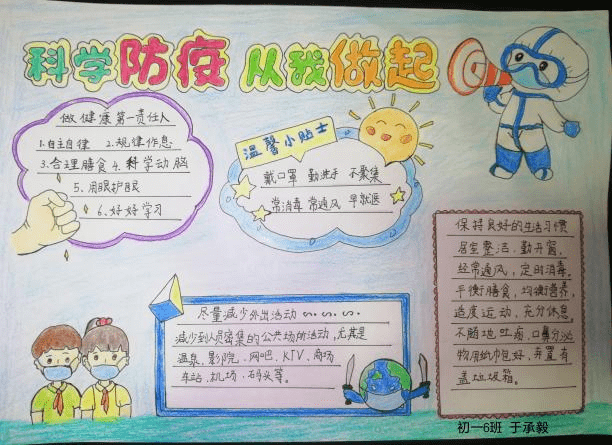 科学防疫 从我做起
做健康第一责任人
1.自主自律 2.规律作息
3.合理膳食 4.科学动脑
5.用眼护眼
6.好好学习
温馨小贴士
戴口罩 勤洗手 不聚集
常消毒 常通风 早就医
尽量减少外出活动
减少到人员密集的公共场所活动,尤其是
温泉、影院、网吧、KTV、商场
车站、机场、码头等。
保持良好的生活习惯
居室整洁,勤开窗,
经常通风,定时消毒。
平衡膳食,均衡营养,
适度运动,充分休息,
不随地吐痰,口鼻分泌
物用纸巾包好,弃置有
盖垃圾箱。
初一6班 于承毅